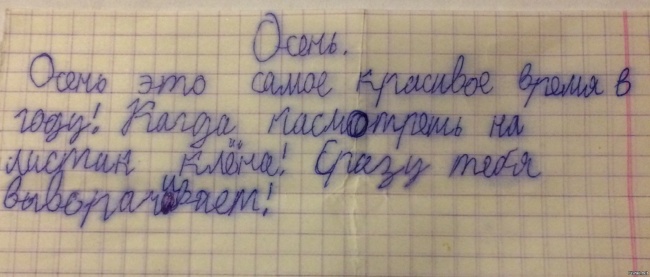 Осень.
Осень это самое красивое время в
году! Кагда пасмотрешь на
листик клёна! Сразу тебя
выворачивает!